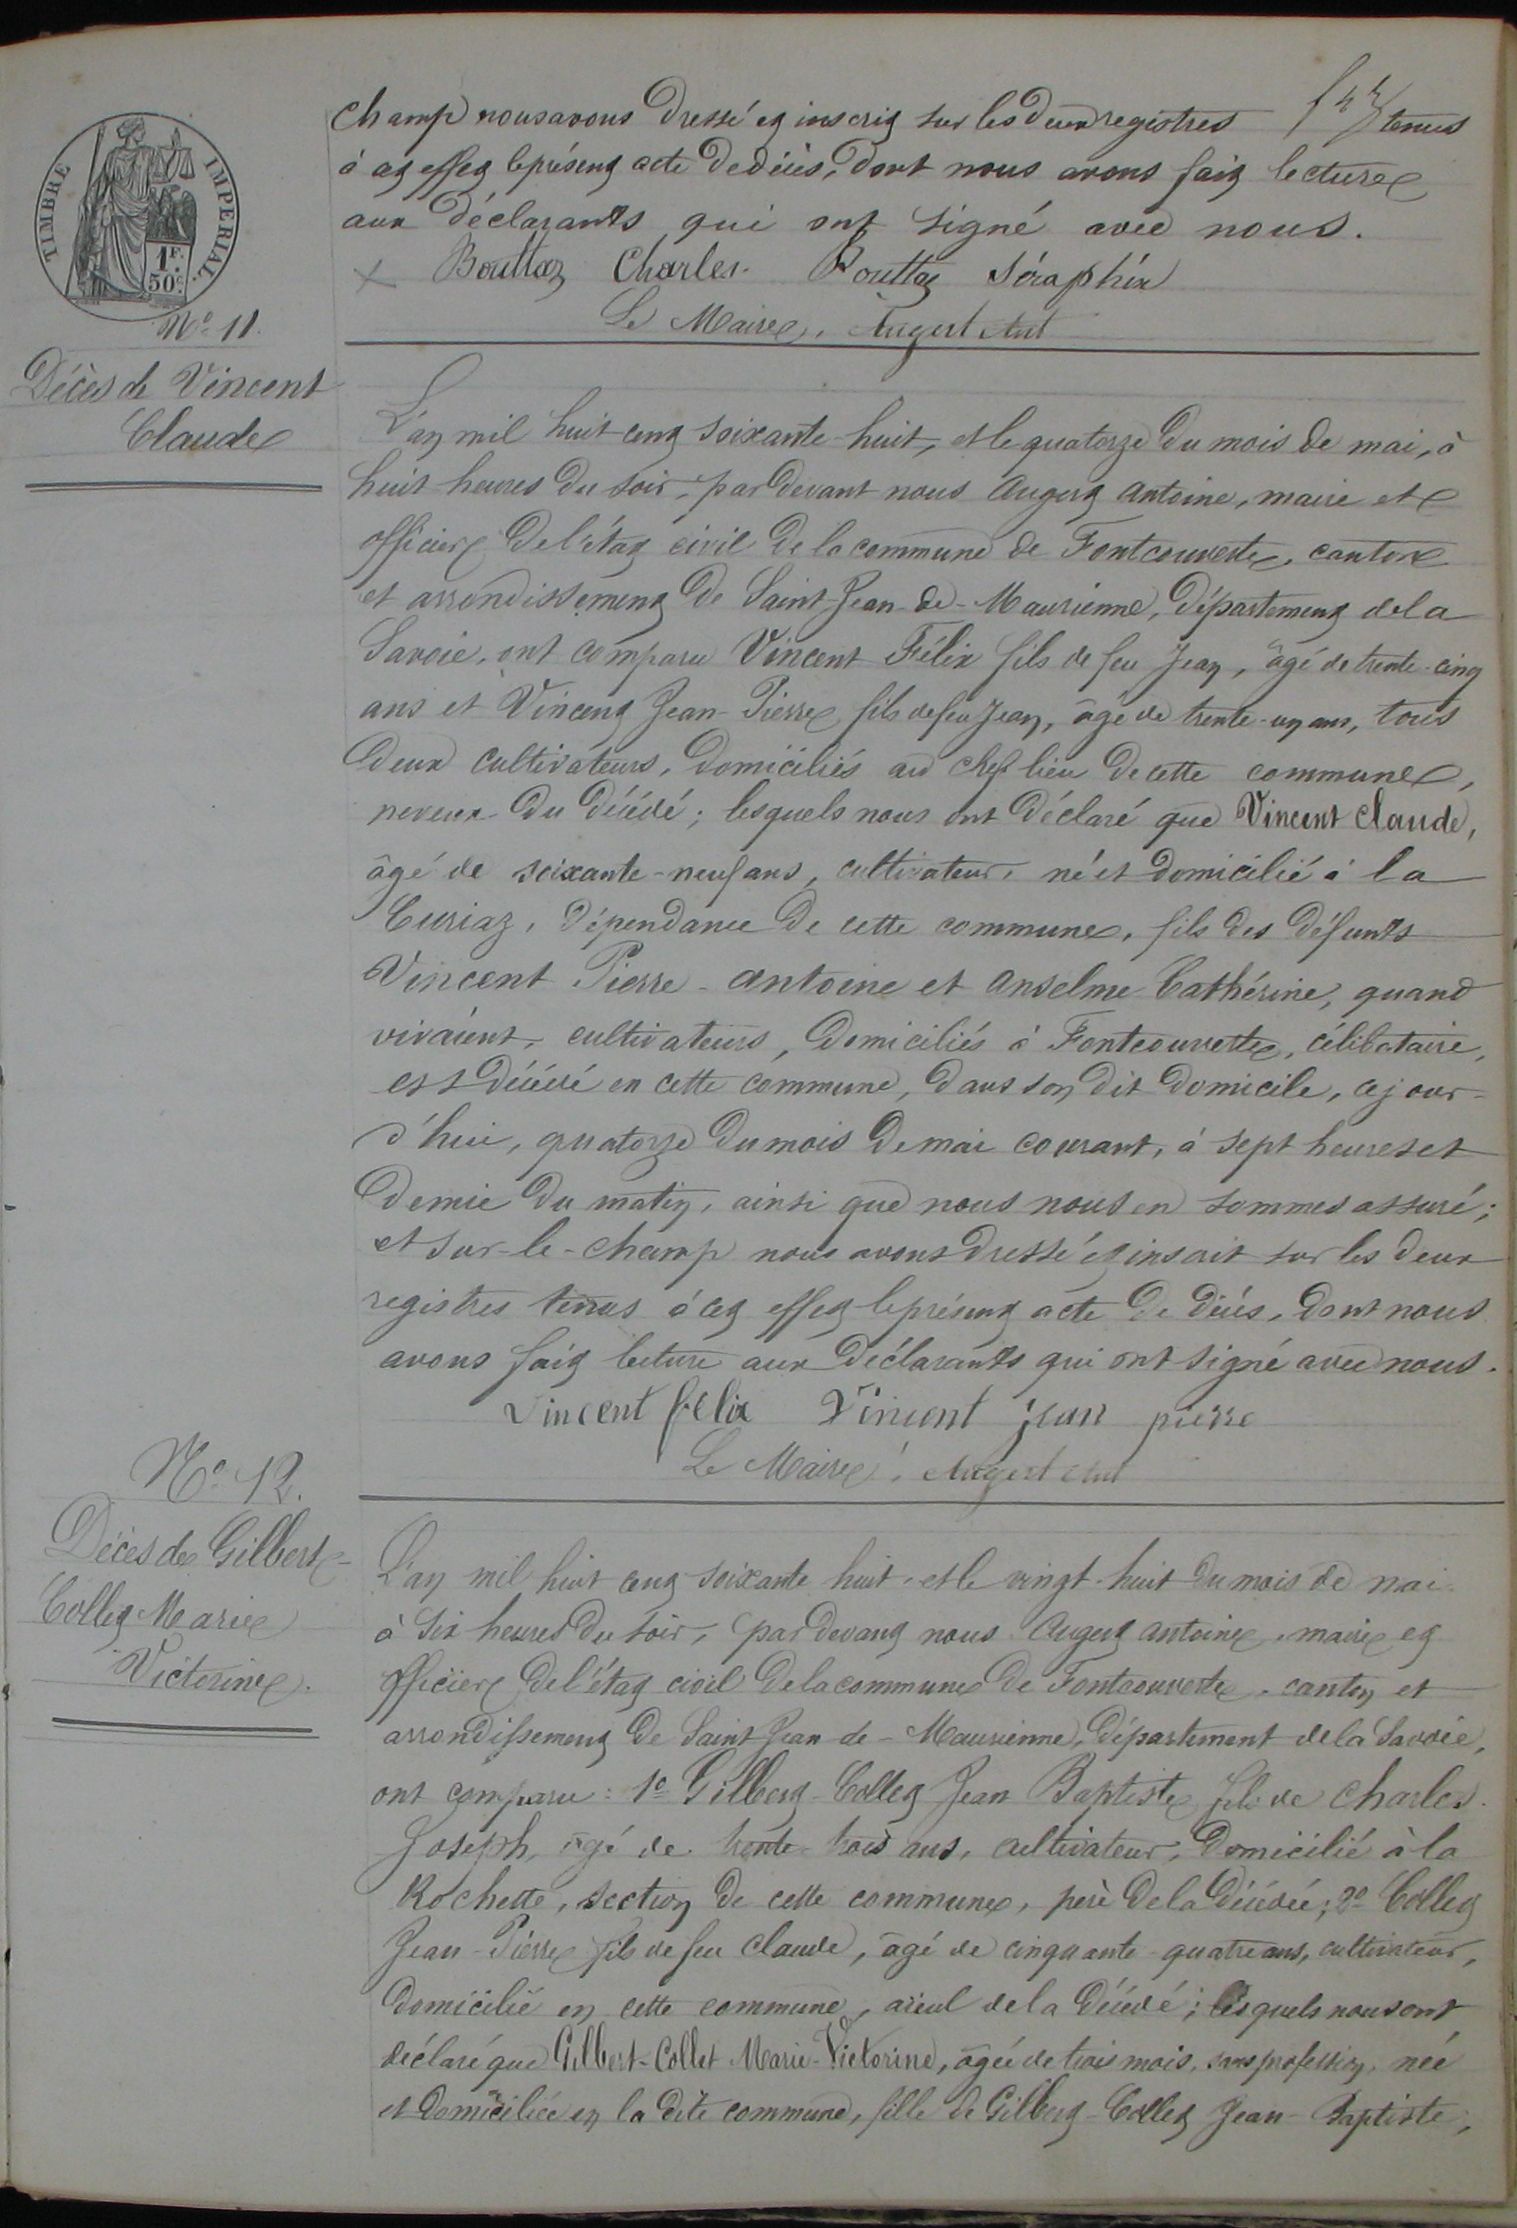 champ nous avons dressé et inscrit sur les deux registres tenus
à cet effet le présent acte de décès, dont nous avons fait lecture
aux déclarants qui ont signé avec nous.
Bouttaz Charles. Bouttaz Séraphin
Le Maire, Augert Ant
TIMBRE IMPERIAL.
1F.
50c.
No 11.
Décès de Vincent
Claude
L'an mil huit cent soixante-huit, et le quatorze du mois de mai, à
huit heures du soir, par devant nous Augert Antoine, maire et
officier de l'état civil de la commune de Fontcouverte, canton
et arrondissement de Saint-Jean-de-Maurienne, département de la
Savoie, ont comparu Vincent Félix fils de feu Jean, âgé de trente-cinq
ans et Vincent Jean-Pierre fils de feu Jean, âgé de trente-un ans, tous
deux cultivateurs, domiciliés au chef lieu de cette commune,
neveux du décédé; lesquels nous ont déclaré que Vincent Claude,
âgé de soixante-neuf ans, cultivateur, né et domicilié à la
Curiaz, dépendance de cette commune, fils des défunts
Vincent Pierre-Antoine et Anselme Cathérine, quand
vivaient, cultivateurs, domiciliés à Fontcouverte, célibataire,
est décédé en cette commune, dans son dit domicile, ce jour-
d'hui, quatorze du mois de mai courant, à sept heures et
demie du matin, ainsi que nous nous en sommes assuré;
et sur-le-champ nous avons dressé et inscrit sur les deux
registres tenus à cet effet le présent acte de décès, dont nous
avons fait lecture aux déclarants qui ont signé avec nous.
Vincent félix Vincent jean pierre
Le Maire, Augert Ant
No 12.
Décès de Gilbert-
Collet Marie
Victorine.
L'an mil huit cent soixante huit, et le vingt-huit du mois de mai
à six heures du soir, par devant nous Augert Antoine, maire et
officier de l'état civil de la commune de Fontcouverte, canton et
arrondissement de Saint Jean-de-Maurienne, département de la Savoie,
ont comparu: 1o Gilbert-Collet Jean Baptiste fils de Charles
Joseph, âgé de trente-trois ans, cultivateur, domicilié à la
Rochette, section de cette commune, père de la décédée; 2o Collet
Jean-Pierre fils de feu Claude, âgé de cinquante-quatre ans, cultivateur,
domicilié en cette commune, aïeul de la décédé; lesquels nous ont
déclaré que Gilbert-Collet Marie-Victorine, âgée de trois mois, sans profession, née
et domiciliée en la dite commune, fille de Gilbert-Collet Jean-Baptiste,